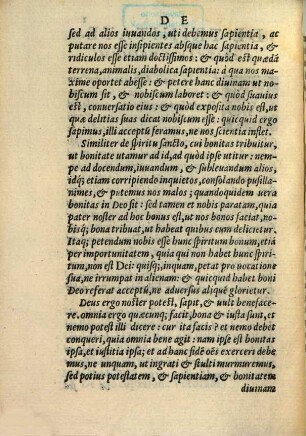 D E
sed ad alios iuuandos, uti debemus sapientia, ac
putare nos esse insipientes absque hac sapientia, &
ridiculos esse etiam doctissimos: & quòd est quædã
terrena, animalis, diabolica sapientia: à qua nos ma-
xime oportet abesse: & petere hanc diuinam ut no-
biscum sit, & nobiscum laboret: & quòd suauius
est, conuersatio eius: & quòd exposita nobis est, ut
quæ delitias suas dicat nobiscum esse: quicquid ergo
sapimus, illi acceptũ feramus, ne nos scientia inflet.
Similiter de spiritu sancto, cui bonitas tribuitur,
ut bonitate utamur ad id, ad quod ipse utitur: nem-
pe ad docendum, iuuandum, & subleuandum alios,
idq; etiam corripiendo inquietos, consolando pusilla-
nimes, & putemus nos malos; quandoquidem uera
bonitas in Deo sit: sed tamen et nobis paratam, quia
pater noster ad hoc bonus est, ut nos bonos faciat, no-
bisq́; bona tribuat, ut habeat quibus cum delicietur.
Itaq; petendum nobis esse hunc spiritum bonum, etiã
per importunitatem, quia qui non habet hunc spiri-
tum, non est Dei: quisq́;, inquam, petat pro uocatione
sua, ne irrumpat in alienam: & quicquid habet boni
Deo referat acceptũ, ne aduersus aliquẽ glorietur.
Deus ergo noster potest, sapit, & uult benefacere
. omnia ergo quæcunq; facit, bona & iusta sunt, et
nemo potest illi dicere: cur ita facis? et nemo debet
conqueri, quia omnia bene agit: nam ipse est bonitas
ipsa, et iustitia ipsa; et ad hanc fidẽ oẽs exerceri debe-
mus, ne unquam, ut ingrati & stulti murmuremus,
sed potius potestatem, & sapientiam, & bonitatem
diuinam